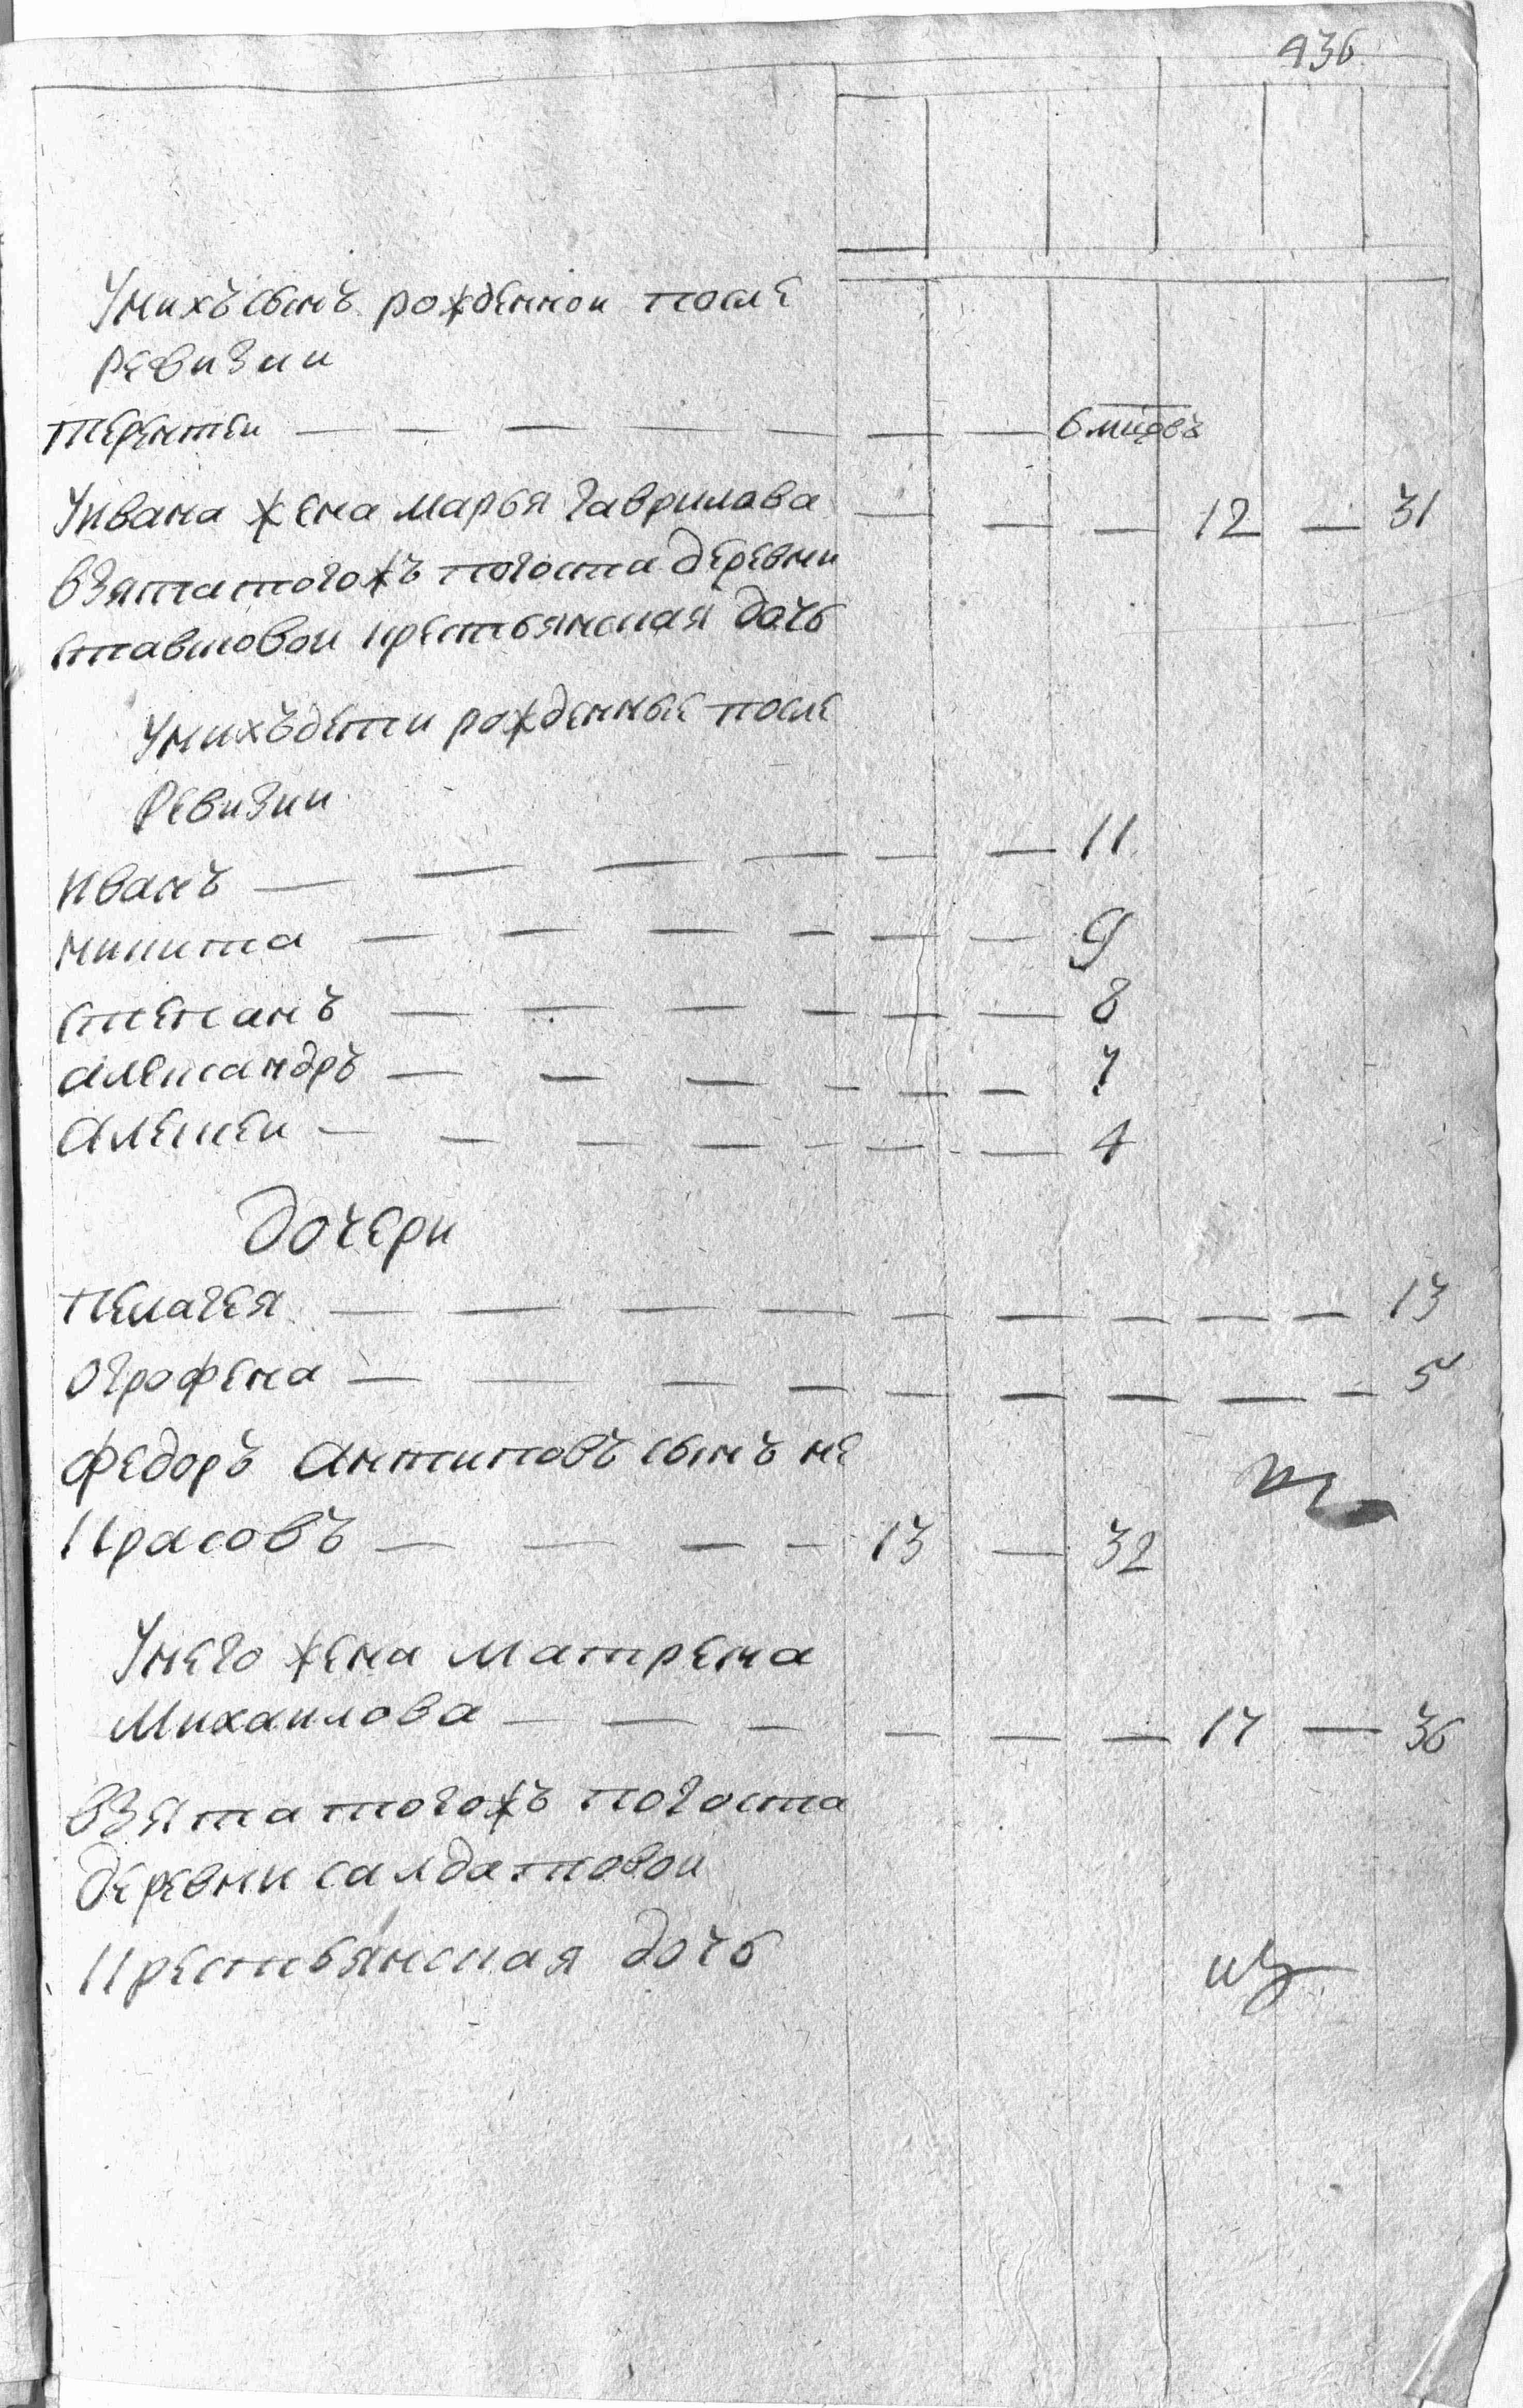 436.
Унихъ сынъ рожденнои после
ревизии
терентеи — — — — — — — 6 мцовъ
Уивана жена марья гаврилова — — — 12 — 31
взята тогожъ погоста деревни
крестьянская дочь
Унихъ дети рожденные после
Ревизии
иванъ — — — — — — 11
никита — — — — — — 9
степанъ — — — — — — 8
александръ — — — — — — 7
алексеи — — — — — — — 4
дочери
пелагея — — — — — — — — — 13
ографена — — — — — — — — — 5
федоръ антиповъ сынъ не
красовъ — — — — 13 — 32
Унего жена матрена
михаилова — — — — — — 17 — 36
взята тогожъ погоста
деревни салдатовои
крестьянская дочь